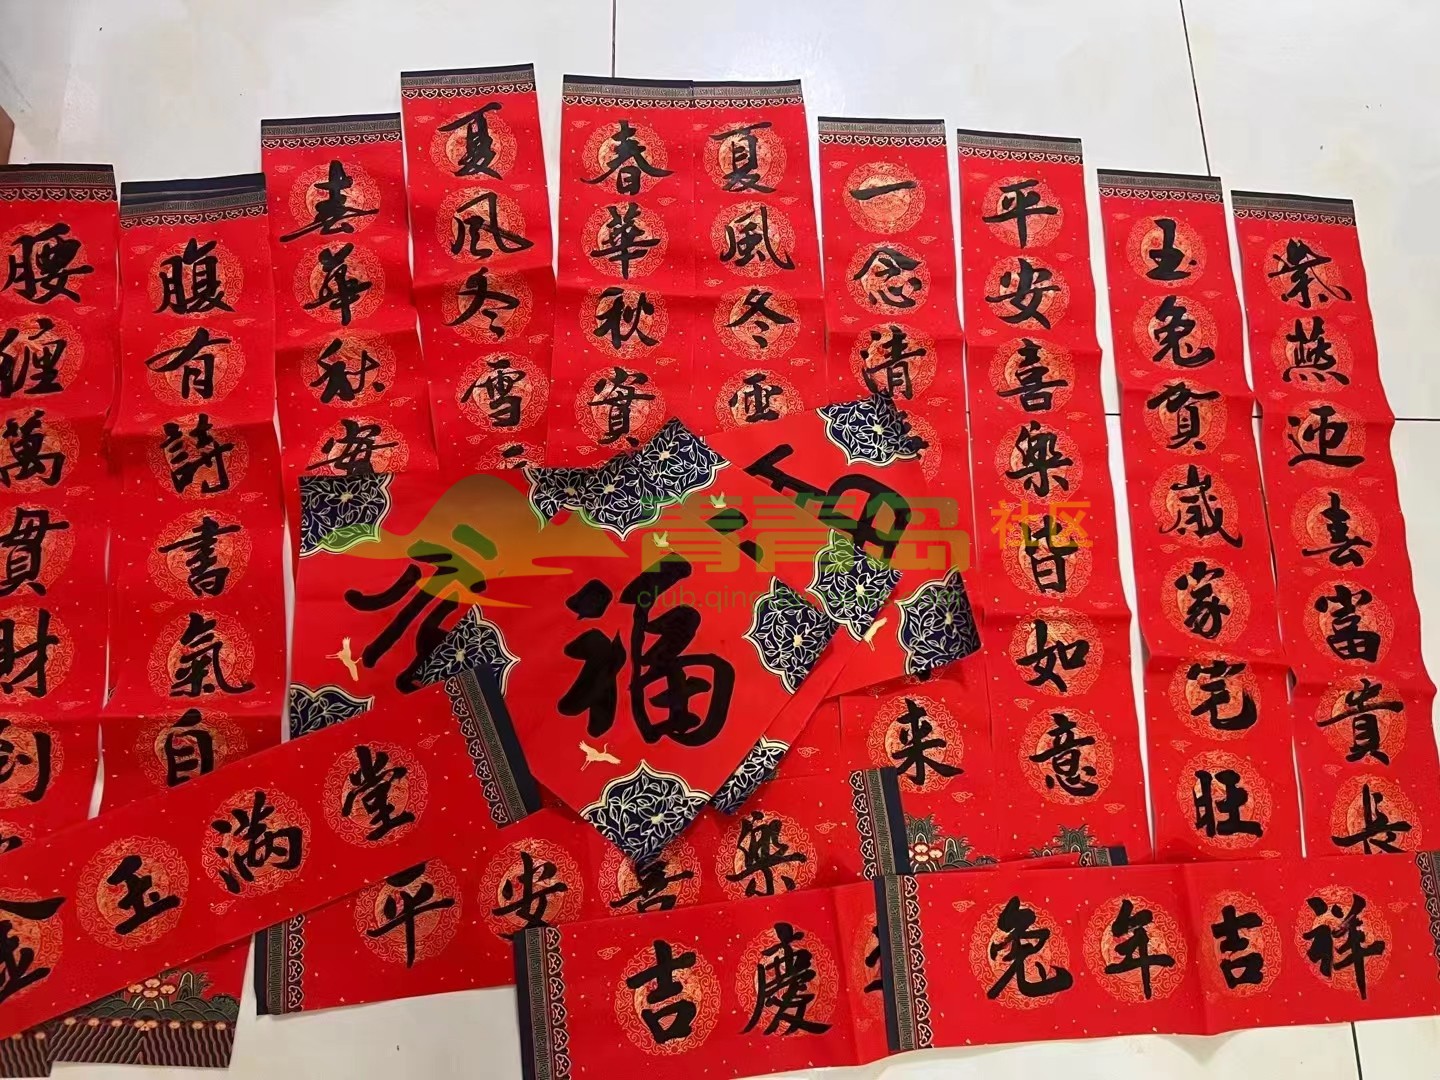 腰缠萬贯財
腹有詩書氣自
春華秋
夏风冬雪
春華秋實
夏風冬雪
一念清
来
平安喜樂皆如意
玉兔贺歲家宅旺
紫燕迎春富貴長
福
金玉满堂
平安喜樂
吉慶
兔年吉祥
青青岛社区
club.qing